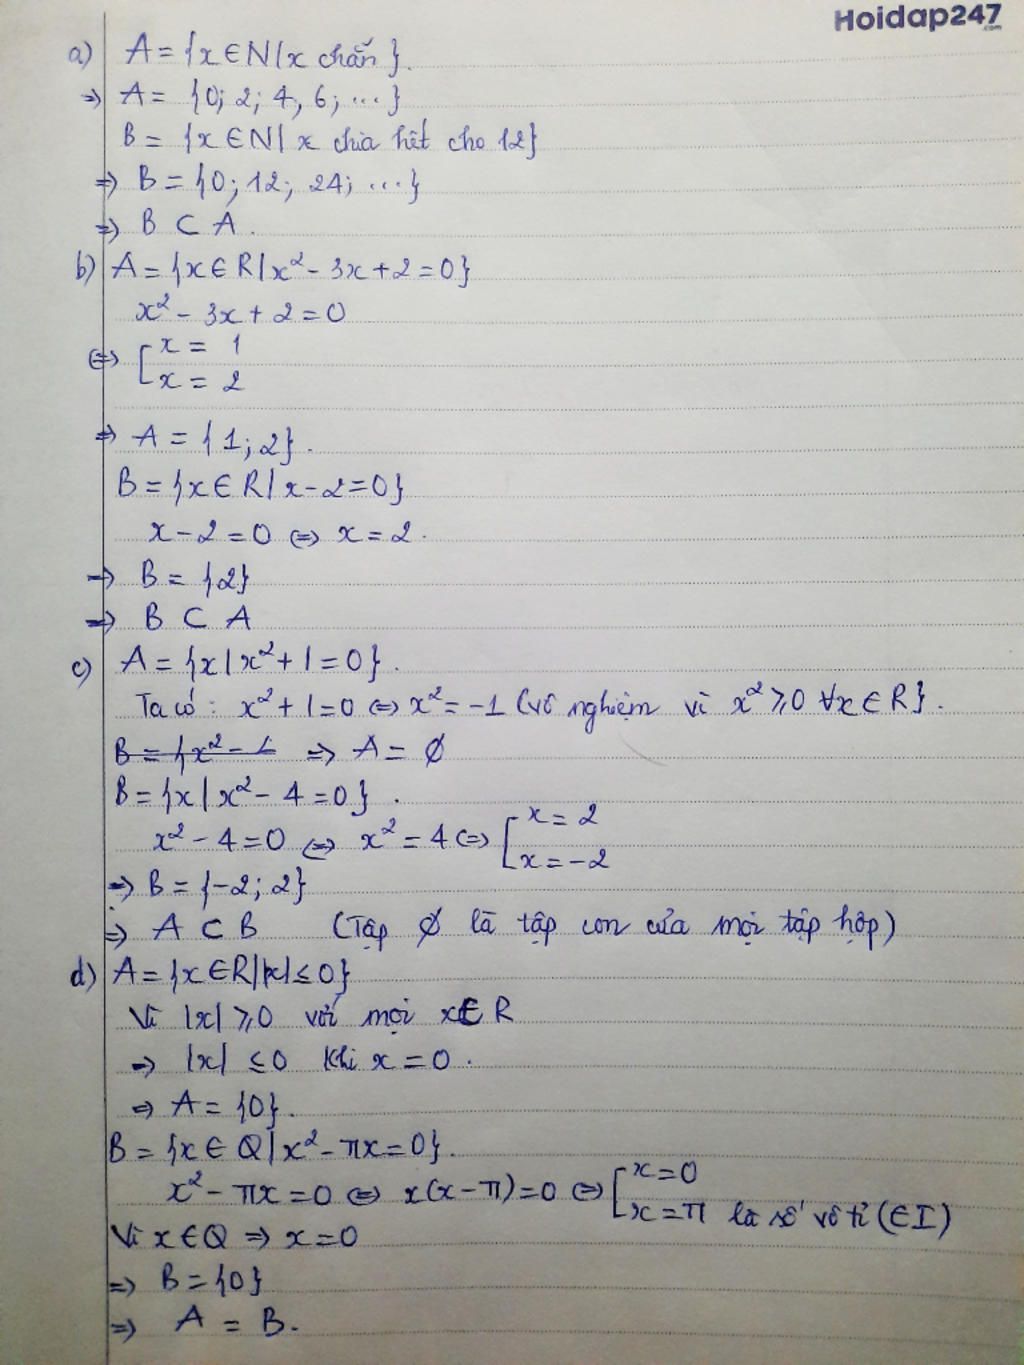 Hoidap247.com
a) A = {x ∈ N | x chẵn}.
=> A = {0; 2; 4; 6; ...}
B = {x ∈ N | x chia hết cho 12}
=> B = {0; 12; 24; ...}
=> B ⊂ A.
b) A = {x ∈ R | x² - 3x + 2 = 0}
x² - 3x + 2 = 0
<=> [ x = 1
x = 2
=> A = {1; 2}.
B = {x ∈ R | x - 2 = 0}
x - 2 = 0 <=> x = 2.
=> B = {2}
=> B ⊂ A
c) A = {x | x² + 1 = 0}.
Ta có: x² + 1 = 0 <=> x² = -1 (vô nghiệm vì x² ⩾ 0 ∀x ∈ R}.
B = {x² - 1 => A = ∅
B = {x | x² - 4 = 0}.
x² - 4 = 0 <=> x² = 4 <=> [ x = 2
x = -2
=> B = {-2; 2}
=> A ⊂ B (Tập ∅ là tập con của mọi tập hợp)
d) A = {x ∈ R | |x| ≤ 0}
Vì |x| ⩾ 0 với mọi x ∈ R
=> |x| ≤ 0 khi x = 0.
=> A = {0}.
B = {x ∈ Q | x² - πx = 0}.
x² - πx = 0 <=> x(x - π) = 0 <=> [ x = 0
x = π là số vô tỉ (∈ I)
Vì x ∈ Q => x = 0
=> B = {0}
=> A = B.